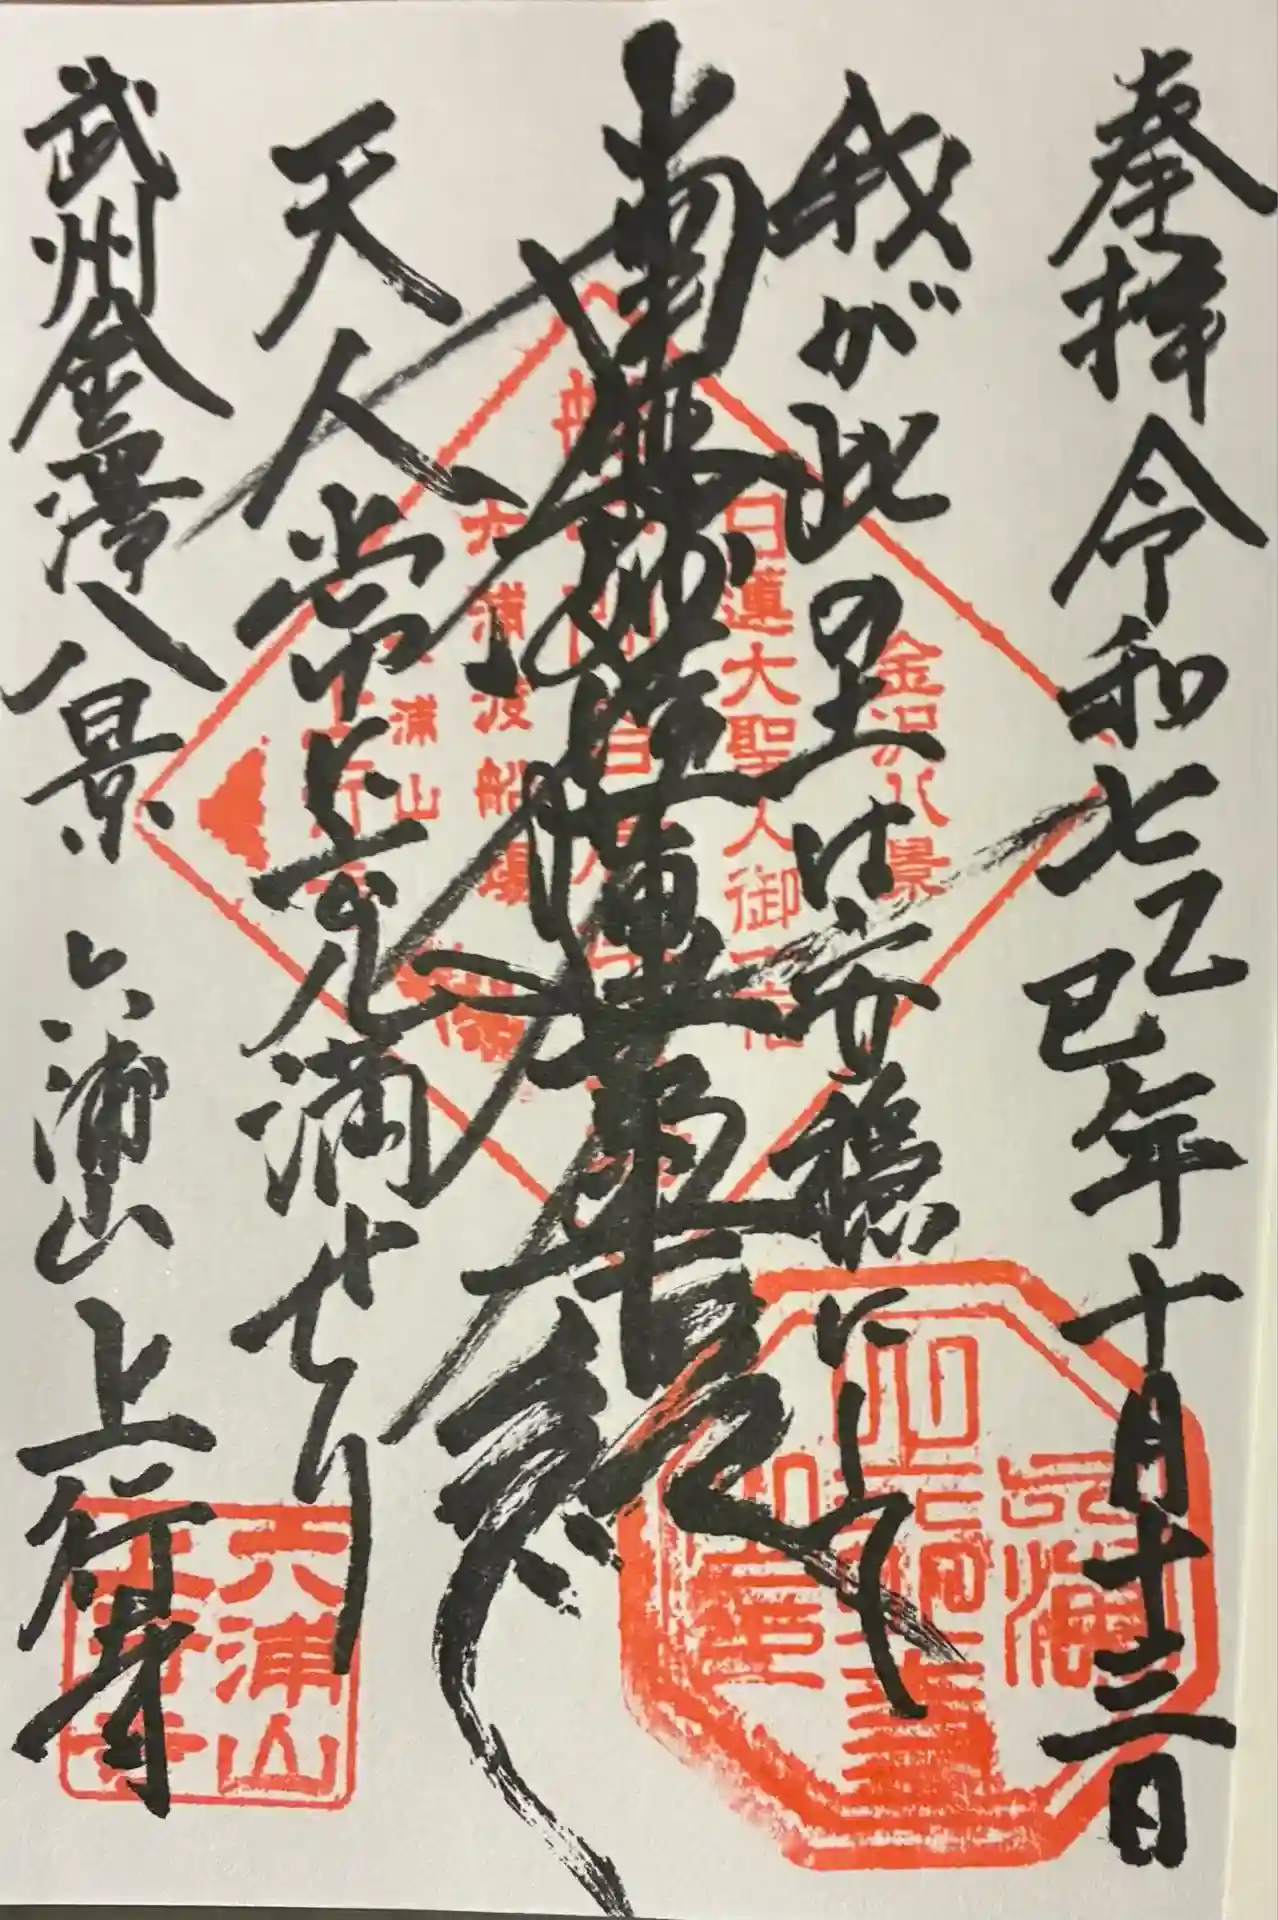 奉拝 令和七乙巳年十月十三日
我が此里は安穏にして
南無妙法蓮華経
天人常に充満せり
武州金澤八景 六浦山 上行寺
金沢八景
日蓮大聖人御
六浦渡船場
六浦山
上行寺
六浦山
上行寺